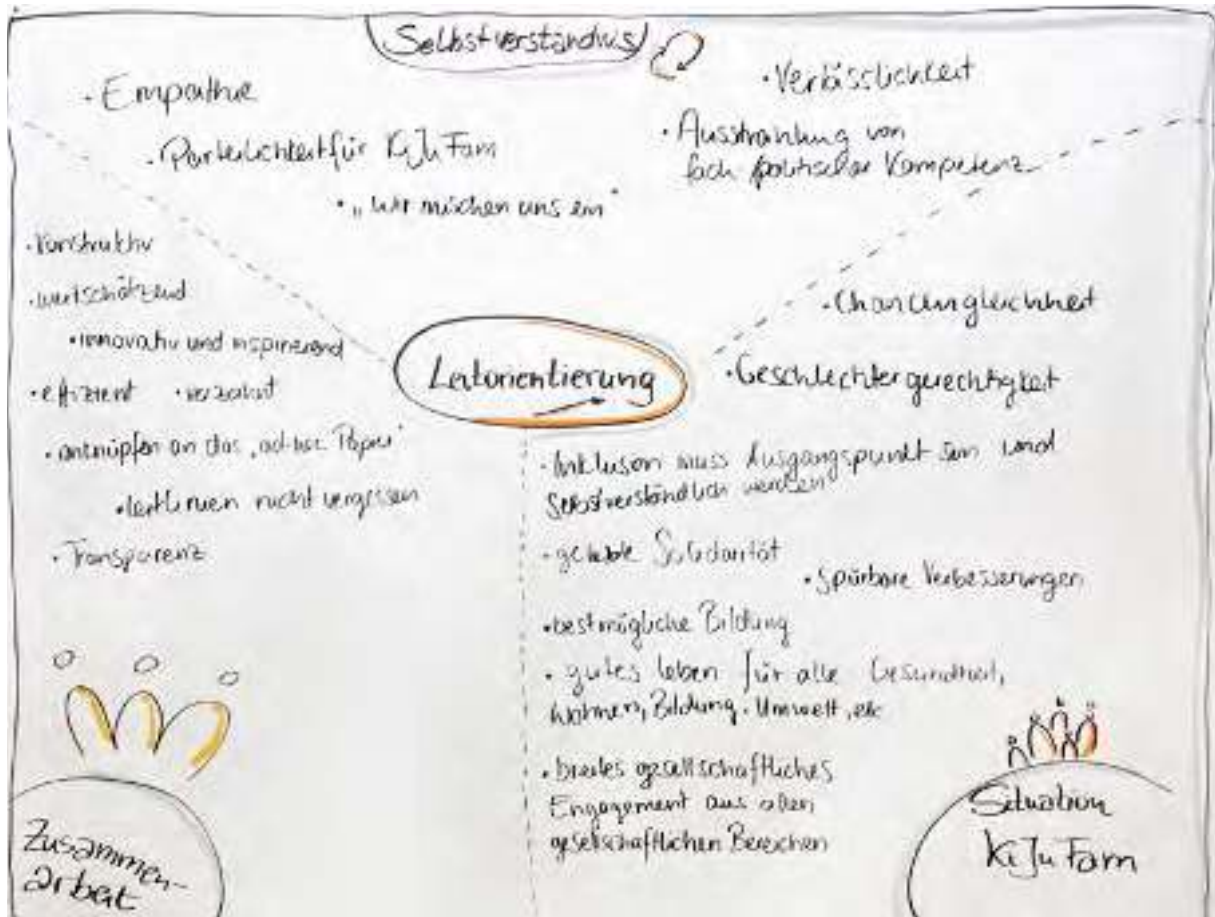 Selbstverständnis
• Empathie
• Parteilichkeit für KiJuFam
• „Wir mischen uns ein"
• Verlässlichkeit
• Ausstrahlung von
fachpolitischer Kompetenz
• konstruktiv
• wertschätzend
• innovativ und inspirierend
• effizient • verzahnt
• anknüpfen an das „ad-hoc Papier"
• Leitlinien nicht vergessen
• Transparenz
Zusammen-
arbeit
Leitorientierung
• Chancengleichheit
• Geschlechtergerechtigkeit
• Inklusion muss Ausgangspunkt sein und
Selbstverständlich werden
• gelebte Solidarität
• Spürbare Verbesserungen
• bestmögliche Bildung
• gutes Leben für alle Gesundheit,
Wohnen, Bildung, Umwelt, etc
• breites gesellschaftliches
Engagement aus allen
gesellschaftlichen Bereichen
Situation
KiJuFam